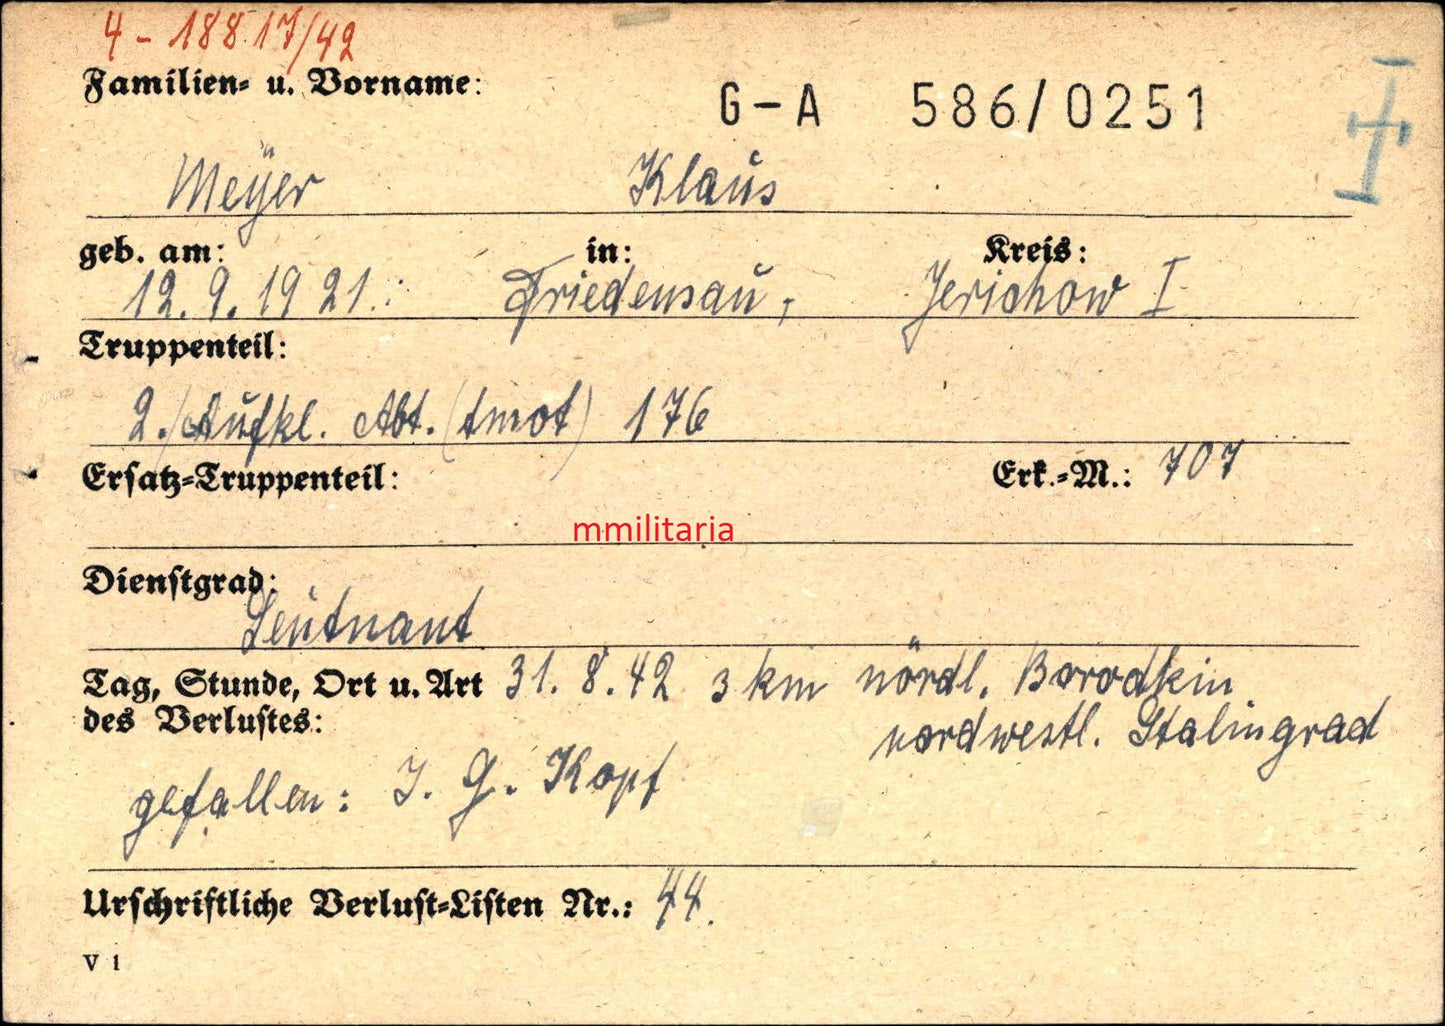 4 - 188 17/42
Familien- u. Vorname:
G-A 586/0251
Meÿer Klaus
geb. am: in: Kreis:
12. 9. 1921. Friedensau, Jerichow I
Truppenteil:
2./Aufkl. Abt. (tmot) 176
Ersatz-Truppenteil: Erk.-M.: 707
mmilitaria
Dienstgrad:
Leutnant
Tag, Stunde, Ort u. Art 31. 8. 42 3 km nördl. Borodkin
des Verlustes: nordwestl. Stalingrad
gefallen: I. G. Kopf
Urschriftliche Verlust-Listen Nr.: 44.
V 1